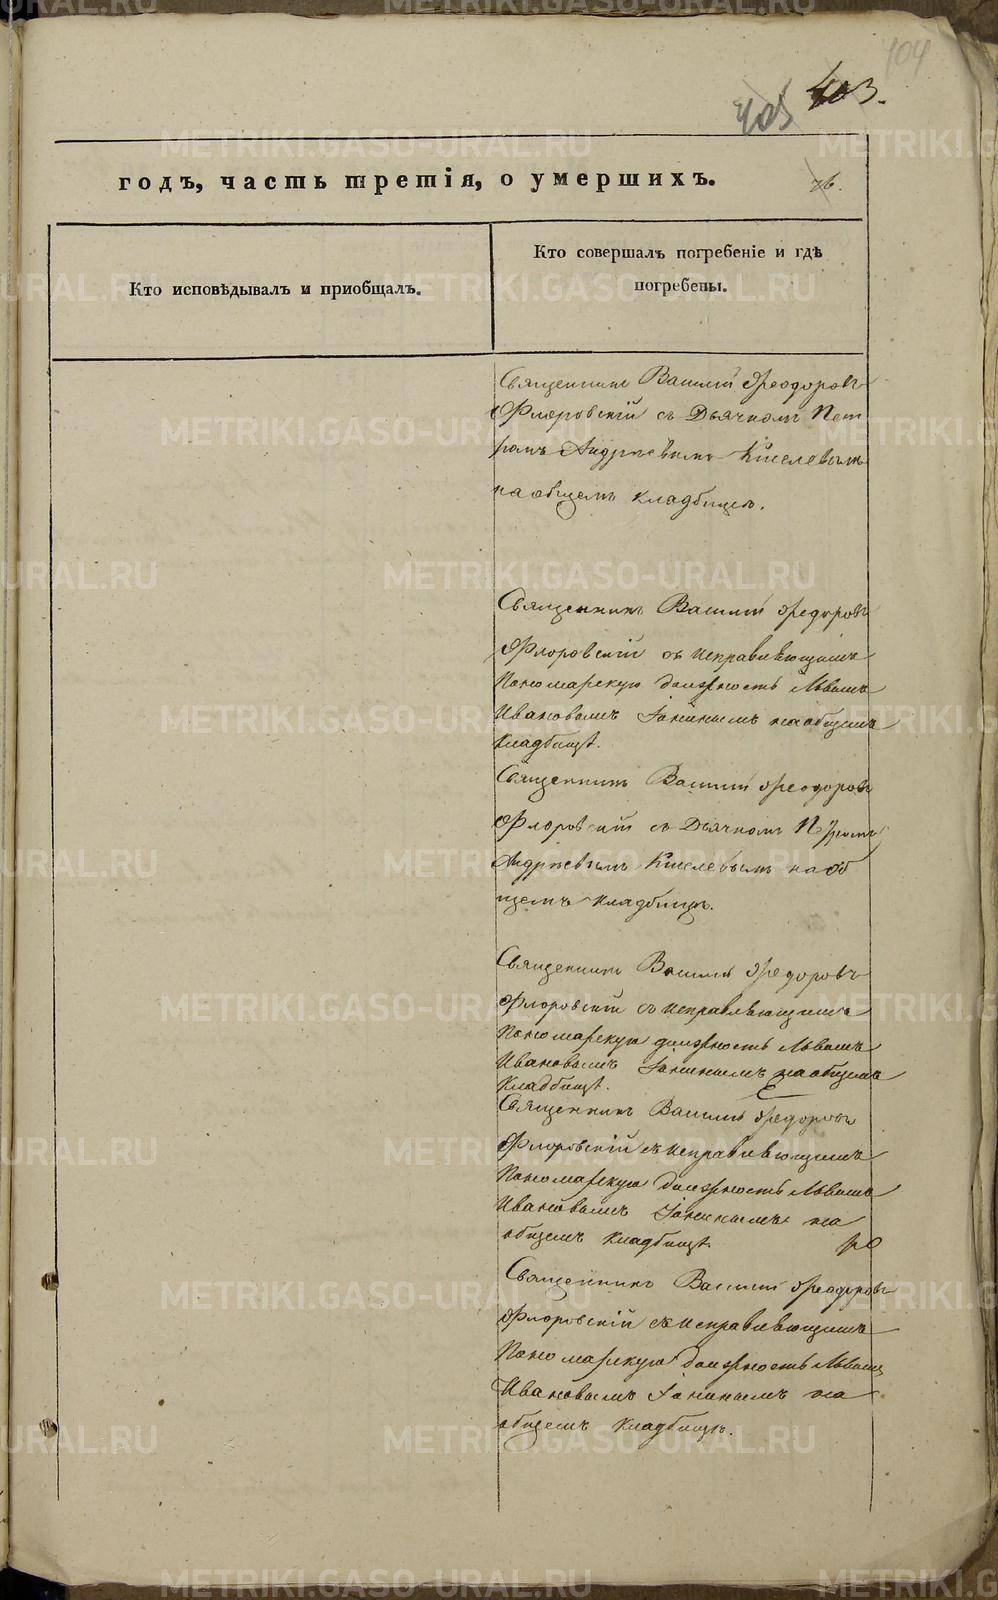 404
403.
405
годъ, часть третія, о умершихъ.
76.
Кто исповѣдывалъ и пріобщалъ.
Кто совершалъ погребеніе и гдѣ
погребены.
Священникъ Василій Ѳеодоровъ
Флоровскій съ Дьячкомъ Пет
ромъ Андреевымъ Киселевымъ
на общемъ кладбищѣ.
Священникъ Василій Ѳедоровъ
Флоровскій съ исправляющимъ
Пономарскую должность Львомъ
Ивановымъ на общемъ
кладбищѣ.
Священникъ Василій Ѳеодоровъ
Флоровскій съ Дьячкомъ Петромъ
Андреевымъ Киселевымъ на об
щемъ кладбищѣ.
Священникъ Василій Ѳедоровъ
Флоровскій съ исправляющимъ
Пономарскую должность Львомъ
Ивановымъ на общемъ
кладбищѣ.
Священникъ Василій Ѳедоровъ
Флоровскій съ исправляющимъ
Пономарскую должность Львомъ
Ивановымъ на
общемъ кладбищѣ.
Священникъ Василій Ѳеодоровъ
Флоровскій съ исправляющимъ
Пономарскую должность Львомъ
Ивановымъ на
общемъ кладбищѣ.
METRIKI.GASO-URAL.RU